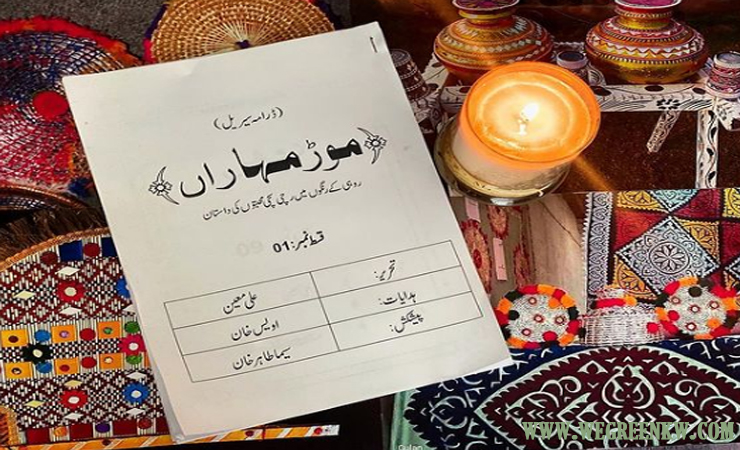 (ڈرامہ سیریل)
موڑ مہاراں
روہی کے رنگوں میں رچی سچی محبتوں کی داستان
قسط نمبر: 01
تحریر: علی معین
ہدایات: اویس خان
پیشکش: سیما طاہر خان
WWW.WEGREENKW.COM